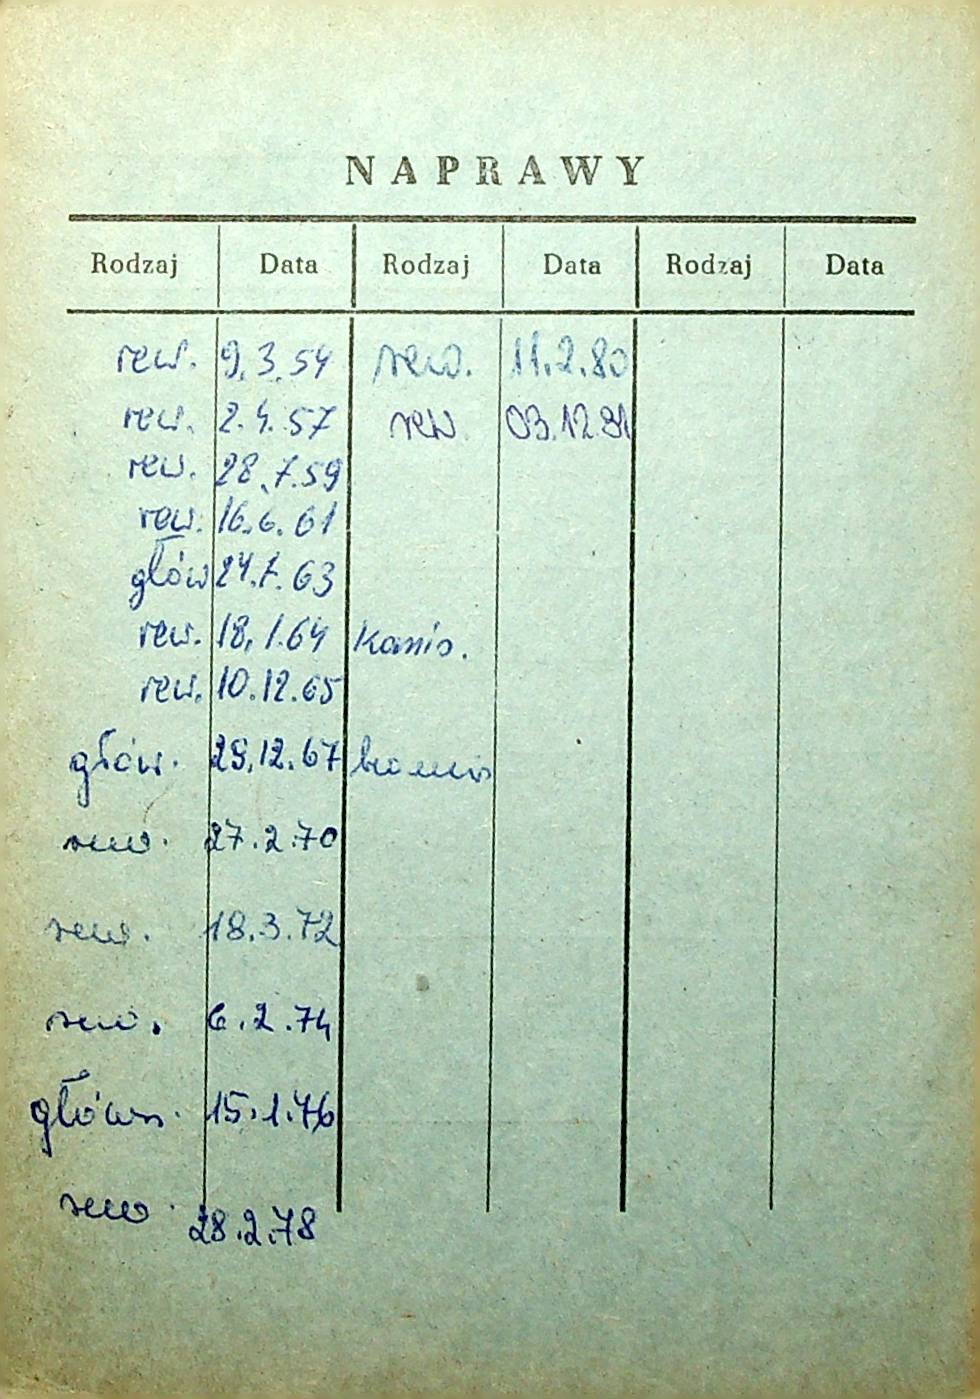 NAPRAWY
Rodzaj Data Rodzaj Data Rodzaj Data
rew. 9.3.54 rew. 11.2.80
rew. 2.4.57 rew 03.12.81
rew. 28.7.59
rew. 16.6.61
głów 24.7.63
rew. 18.1.64
rew. 10.12.65
głów. 29.12.67
rew. 27.2.70
rew. 18.3.72
rew. 6.2.74
główn. 15.1.76
rew. 28.2.78